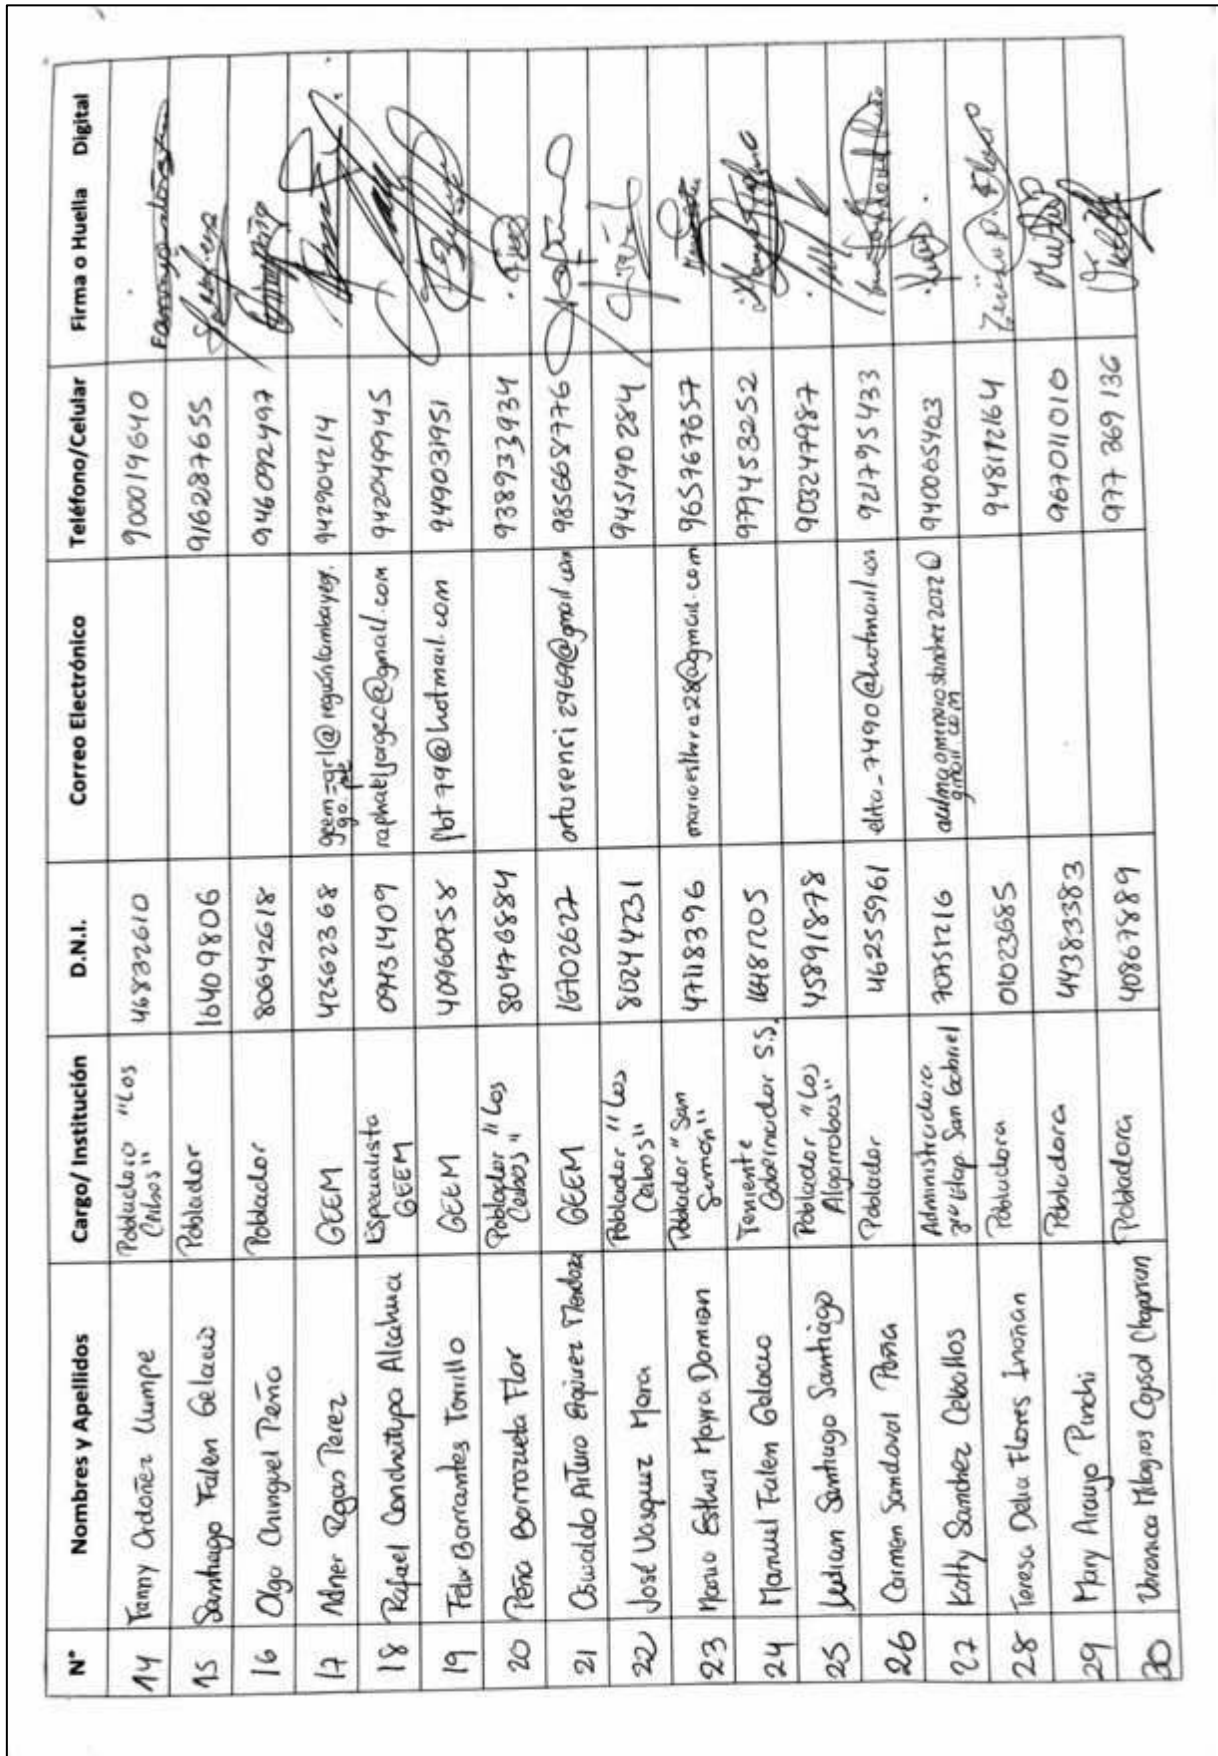 N° Nombres y Apellidos Cargo/ Institución D.N.I. Correo Electrónico Teléfono/Celular Firma o Huella Digital
14 Fanny Ordoñez Llumpe Pobladora "Los Ceibos" 46832610 900019640
15 Santiago Falen Gelacio Poblador 16409806 916287655
16 Olga Chinguel Peña Poblador 80642618 946092497
17 Abner Rojas Perez GEEM 42562368 942904214
18 Rafael Conchatupa Alcahua Especialista GEEM 09431409 raphaeljorgec@gmail.com 942049945
19 Felix Barrantes Torrillo GEEM 40960758 fbt79@hotmail.com 949031951
20 Peña Barrozueta Flor Poblador "Los Ceibos" 80476884 938933934
21 Oswaldo Arturo Mendoza GEEM 16702627 arturenri2969@gmail.com 985668776
22 José Vasquez Mora Poblador "Los Ceibos" 80244231 945190284
23 Maria Esther Mayra Damian Poblador "San Simón" 47118396 mariaesthere28@gmail.com 965767657
24 Manuel Falen Gelacio Teniente Gobernador S.S. 16481205 979453252
25 Julian Santiago Santiago Poblador "Los Algarrobos" 45891878 903247987
26 Carmen Sandoval Peña Poblador 46255961 elita_7490@hotmail.com 921795433
27 Katty Sanchez Ceballos Administradora 3ra Etap. San Gabriel 70751216 940065403
28 Teresa Delia Flores Inoñan Pobladora 01023685 948172164
29 Mary Araujo Pinchi Pobladora 44383383 967011010
30 Veronica Milagros Cajsol Chapoñan Pobladora 40867889 977 369 136